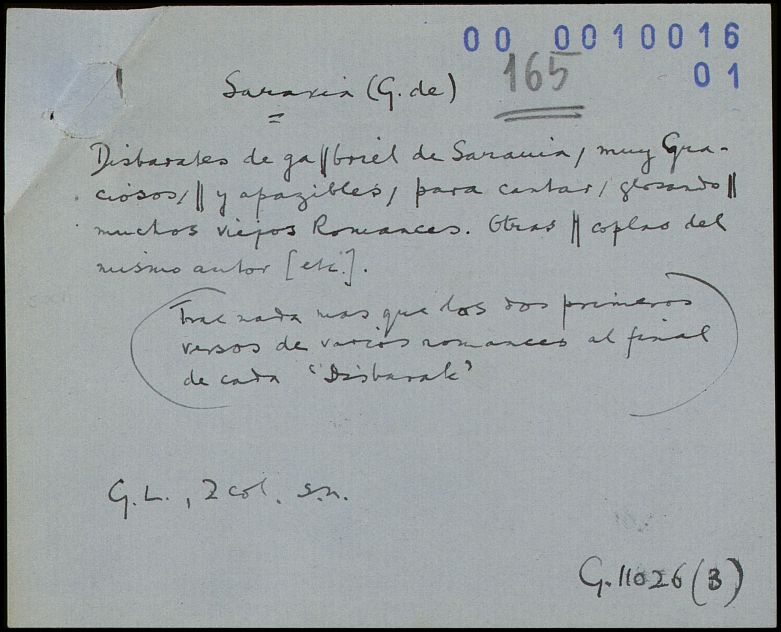 00 0010016
01
165
Saravia (G. de)
Disbarates de ga||briel de Sarauia, muy Gra-
ciosos,|| y apazibles, para cantar, glosando||
muchos viejos Romances. Otras || coplas del
mismo autor [etc.].
Trae nada mas que los dos primeros
versos de varios romances al final
de cada "Disbarate"
G.L., 2 col. s.n.
G.11026 (3)